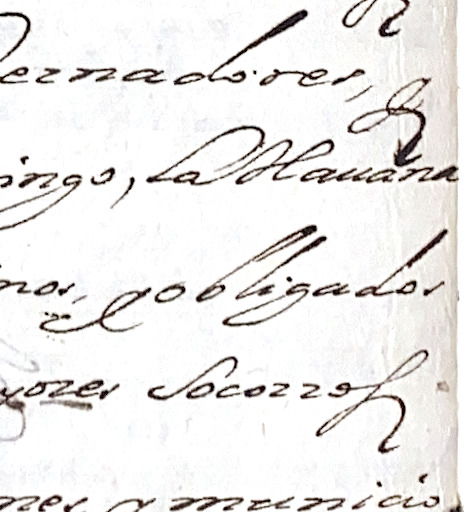 ernadores,
ingo, La Hauana
nos, obligados
yores Socorros
nes, y municio